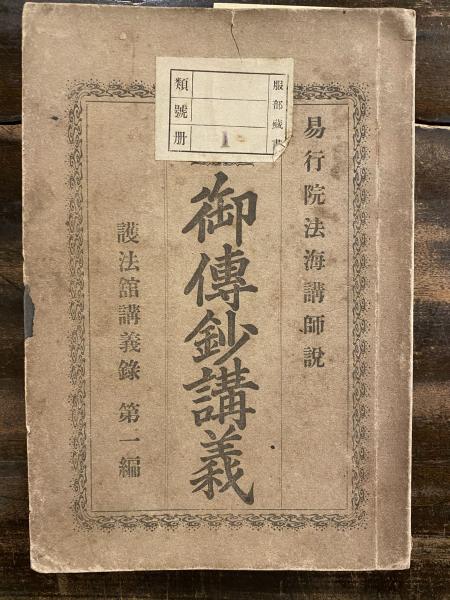 易行院法海講師說
御傳鈔講義
護法館講義錄 第一編
服部藏書
類
號
册 1